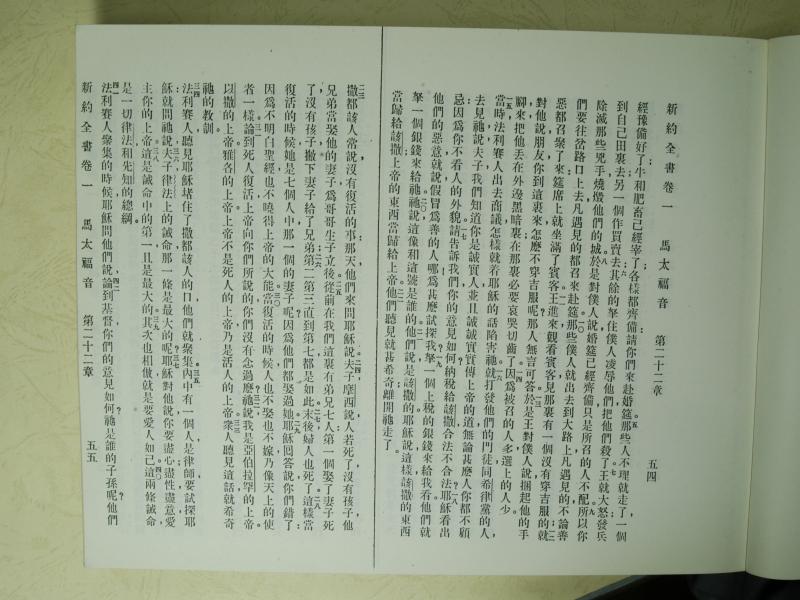 新約全書卷一 馬太福音 第二十二章 五四
經豫備好了牛和肥畜已經宰了各樣都齊備請你們來赴婚筵那些人不理就走了一個
到自己田裏去另一個作買賣去其餘的拏住僕人凌辱他們把他們殺了王就大怒發兵
除滅那些兇手燒燬他們的城於是對僕人說婚筵已經齊備只是所召的人不配所以你
們要往岔路口上去凡遇見的都召來赴筵那些僕人就出去到大路上凡遇見的不論善
惡都召聚了來筵席上就坐滿了賓客王進來觀看賓客見那裏有一個沒有穿吉服的就
對他說朋友你到這裏來怎麽不穿吉服呢那人無言可答於是王對僕人說捆起他的手
腳來把他丟在外邊黑暗裏在那裏必要哀哭切齒了因爲被召的人多選上的人少
當時法利賽人出去商議怎樣就着耶穌的話陷害祂就打發他們的門徒同希律黨的人
去見祂說夫子我們知道你是誠實人並且誠誠實實傳上帝的道無論甚麽人你都不顧
忌因爲你不看人的外貌請告訴我們你的意見如何納稅給該撒合法不合法耶穌看出
他們的惡意就說假冒爲善的人哪爲甚麽試探我拏一個上稅的銀錢來給我看他們就
拏一個銀錢來給祂祂說這像和這號是誰的他們說是該撒的耶穌說這樣該撒的東西
當歸給該撒上帝的東西當歸給上帝他們聽見就甚希奇離開祂走了
撒都該人常說沒有復活的事那天他們來問耶穌說夫子摩西說人若死了沒有孩子他
兄弟當娶他的妻子爲哥哥生子立後從前在我們這裏有弟兄七人第一個娶了妻子死
了沒有孩子撇下妻子給了兄弟第二第三直到第七都是如此末後婦人也死了這樣當
復活的時候她是七個人中那一個的妻子呢因爲他們都娶過她耶穌回答說你們錯了
因爲不明白聖經也不曉得上帝的大能當復活的時候人也不娶也不嫁乃像天上的使
者一樣論到死人復活上帝向你們所說的你們沒有念過麽祂說我是亞伯拉罕的上帝
以撒的上帝雅各的上帝上帝不是死人的上帝乃是活人的上帝衆人聽見這話就希奇
祂的教訓
法利賽人聽見耶穌堵住了撒都該人的口他們就聚集內中有一個人是律師要試探耶
穌就問祂說夫子律法上的誡命那一條是最大的呢耶穌對他說你要盡心盡性盡意愛
主你的上帝這是誡命中的第一且是最大的其次也相倣就是要愛人如己這兩條誡命
是一切律法和先知的總綱
法利賽人聚集的時候耶穌問他們說論到基督你們的意見如何祂是誰的子孫呢他們
新約全書卷一 馬太福音 第二十二章 五五